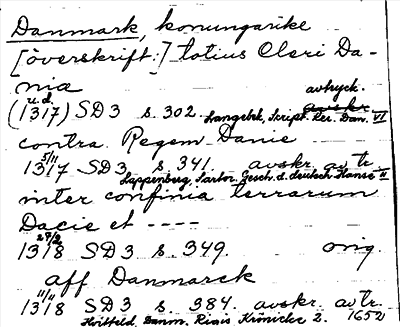 Danmark, konungarike
[överskrift:] totius Cleri Da-
niæ avtryck.
u.d.
(1317) SD3 s. 302. Langebek, Script. Rer. Dan. VI
contra Regem Danie
5/11
1317 SD3 s. 341. avskr. av tr.
Lappenberg, Sartor. Gesch. d. deutsch. Hanse II
inter confinia terrarum
Dacie et ----
27/2
1318 SD3 s. 349. orig.
aff Danmarck
11/11
1318 SD3 s. 384. avskr. av tr.
Hvitfeld, Danm. Rigis Krönicke 2. 1652